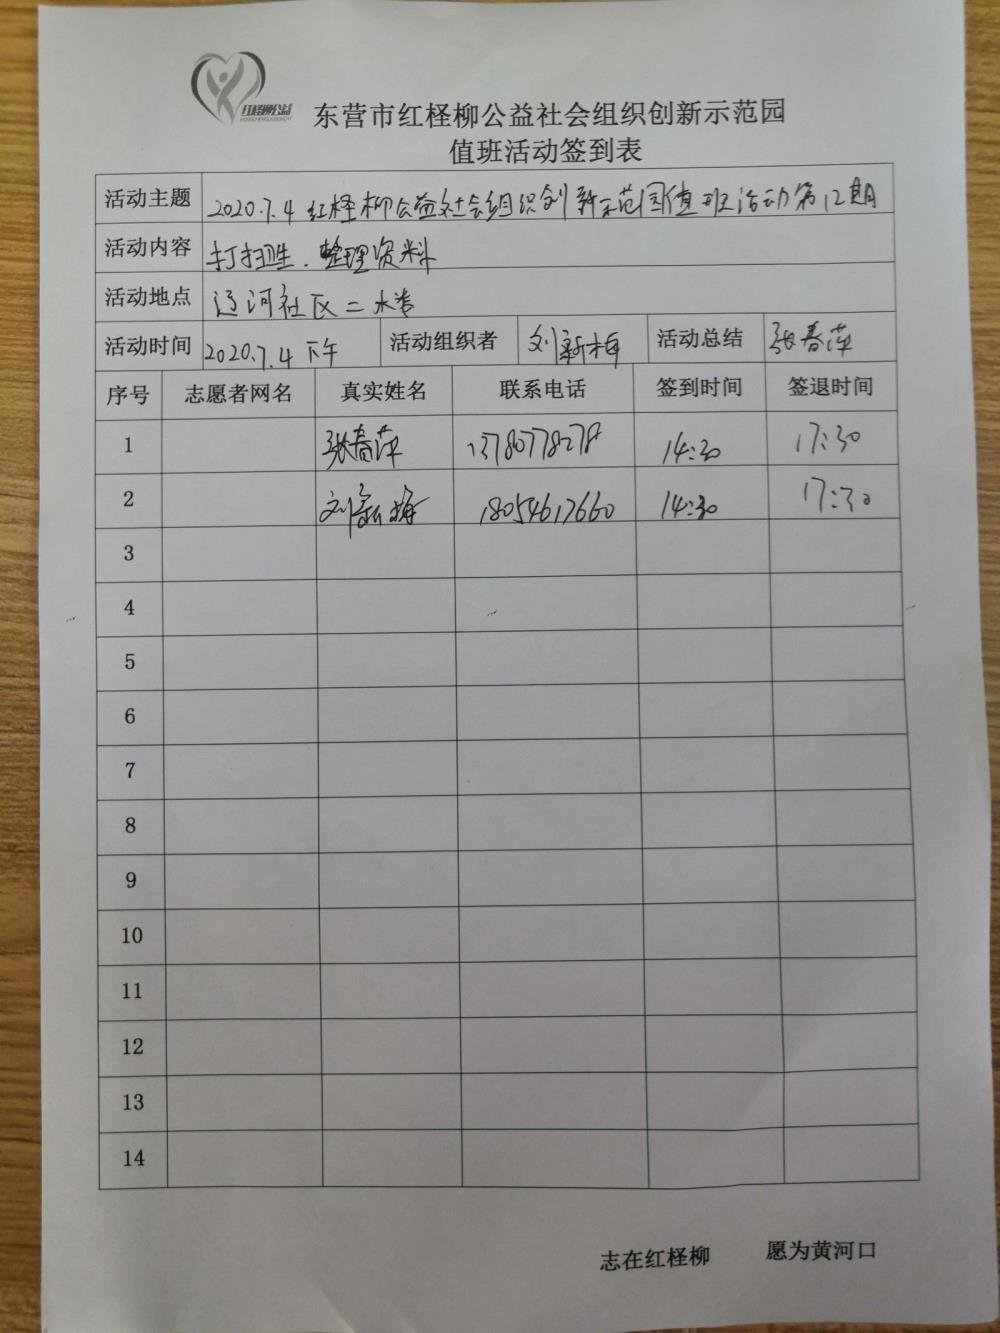 红柽柳公益
东营市红柽柳公益社会组织创新示范园
值班活动签到表
活动主题 2020.7.4 红柽柳公益社会组织创新示范园值班活动第12期
活动内容 打扫卫生．整理资料
活动地点 辽河社区二水巷
活动时间 2020.7.4 下午 活动组织者 刘新梅 活动总结 张春萍
序号 志愿者网名 真实姓名 联系电话 签到时间 签退时间
1 张春萍 13780778278 14:30 17:30
2 刘新梅 18054617660 14:30 17:30
3
4
5
6
7
8
9
10
11
12
13
14
志在红柽柳 愿为黄河口